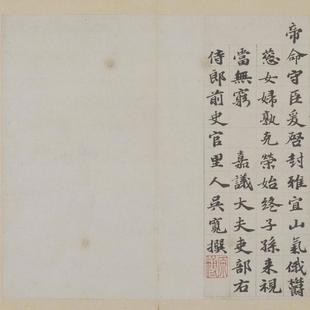 帝命守臣爰啓封雅宜山氣俄鬱
葱女婦孰克榮始終子孫来視
當無窮　嘉議大夫吏部右
侍郎前史官里人吳寬撰